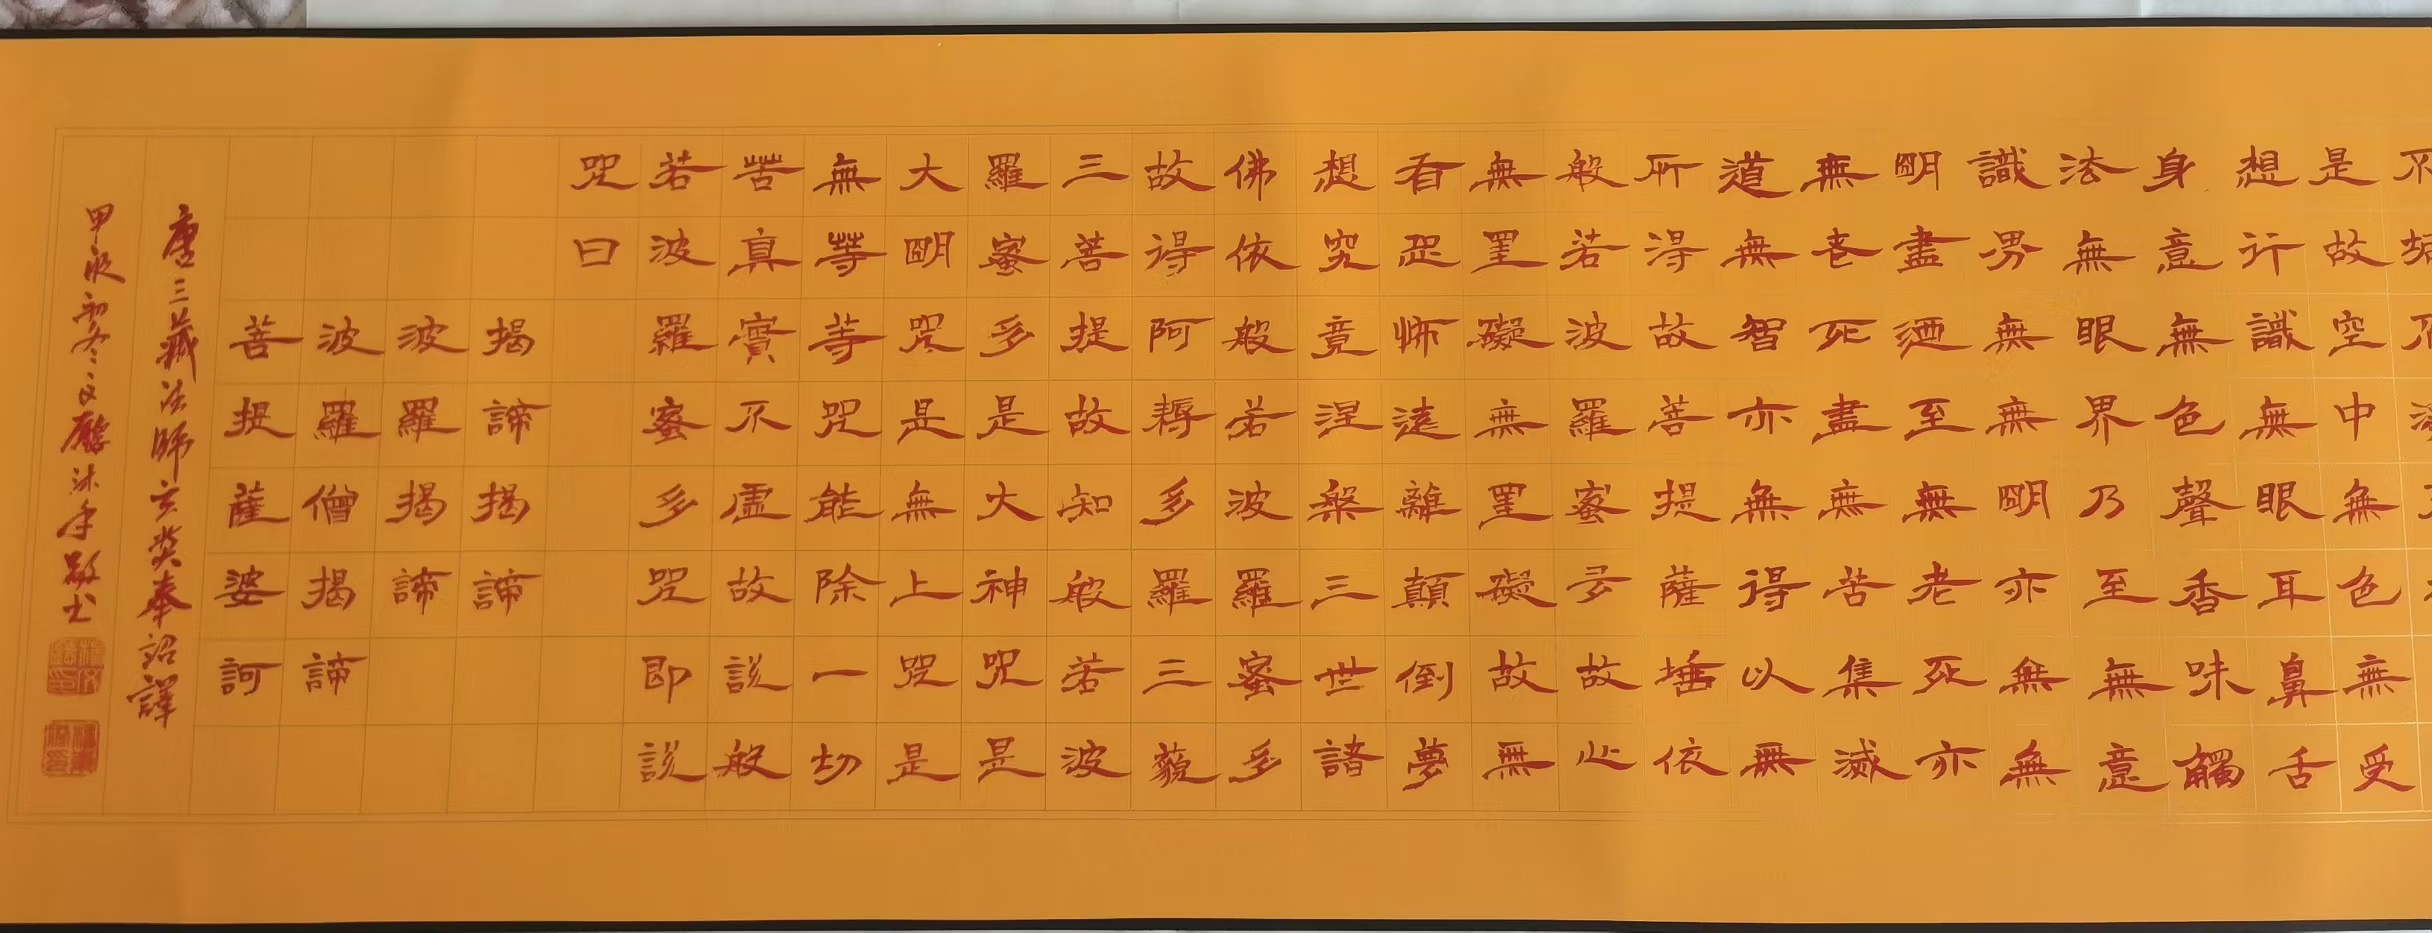 是故空中無色無受
想行識無眼耳鼻舌
身意無色聲香味觸
法無眼界乃至無意
識界無無明亦無無
明盡迺至無老死亦
無老死盡無苦集滅
道無智亦無得以無
所得故菩提薩埵依
般若波羅蜜多故心
無罣礙無罣礙故無
有恐怖遠離顛倒夢
想究竟涅槃三世諸
佛依般若波羅蜜多
故得阿耨多羅三藐
三菩提故知般若波
羅蜜多是大神咒是
大明咒是無上咒是
無等等咒能除一切
苦真實不虛故說般
若波羅蜜多咒即說
咒曰
揭諦揭諦
波羅揭諦
波羅僧揭諦
菩提薩婆訶
唐三藏法師玄奘奉詔譯
甲辰初冬文沐手敬书